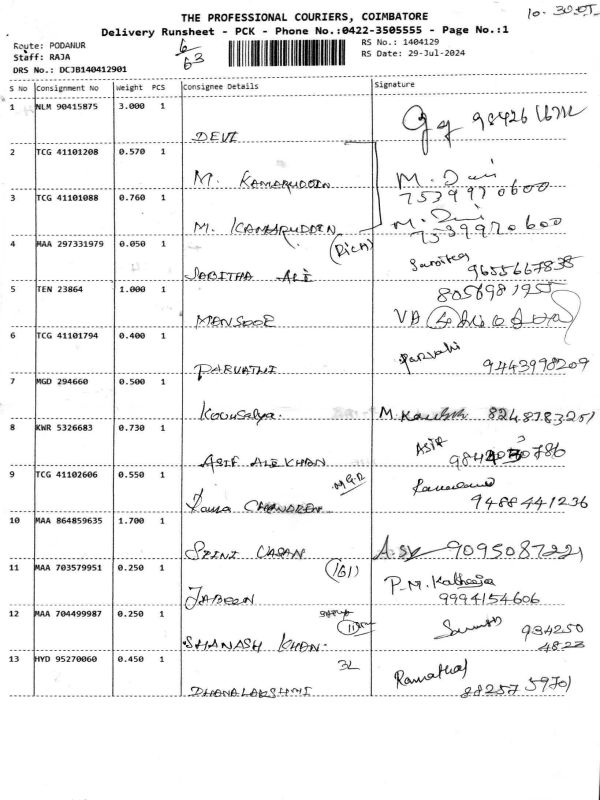 THE PROFESSIONAL COURIERS, COIMBATORE
10.30
Delivery Runsheet - PCK - Phone No.:0422-3505555 - Page No.:1
Route: PODANUR
Staff: RAJA
DRS No.: DCJB140412901
6/63
RS No.: 1404129
RS Date: 29-Jul-2024
S No Consignment No Weight PCS Consignee Details Signature
1 NLM 90415875 3.000 1 DEVI
2 TCG 41101208 0.570 1 M. KAMARUDDIN 7539970600
3 TCG 41101088 0.760 1 M. KAMARUDDEN 7539970600
4 MAA 297331979 0.050 1 SABITHA ALI (RICH) 9655667835
5 TEN 23864 1.000 1 MANSOOR 8056981955
6 TCG 41101794 0.400 1 PARVATHI Parvathi 9443998209
7 MGD 294660 0.500 1 Kousalya. 8248783251
8 KWR 5326683 0.730 1 ASIF ALI KHAN ASIF
9 TCG 41102606 0.550 1 Rama CHANDREN M.G.R 9488441236
10 MAA 864859635 1.700 1 SRINI VASAN 9095087221
11 MAA 703579951 0.250 1 JABEEN (161) P.M. Katheeja 9994154606
12 MAA 704499987 0.250 1 SHANASH KHAN. 934250 4823
13 HYD 95270060 0.450 1 DHANALAKSHMI 3L Ramathal 88257 59701